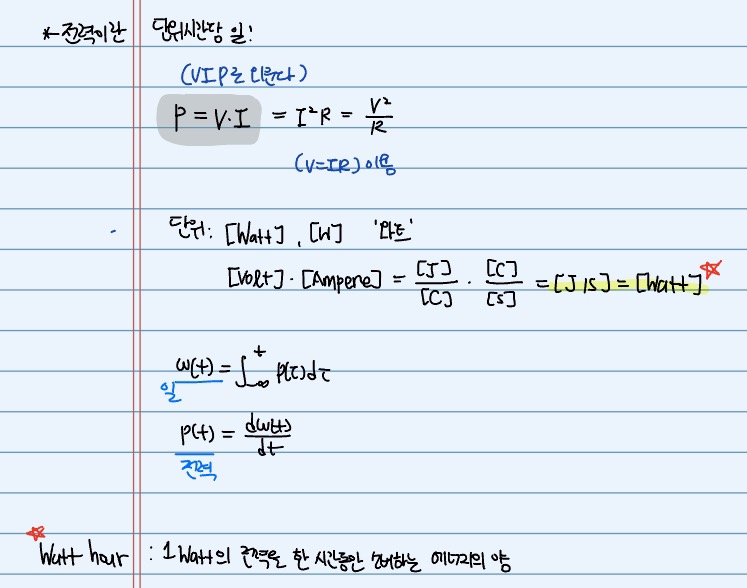 * 전력이란 단위시간당 일!
(VIP로 외운다)
P = V·I = I²R = V²/R
(V=IR) 이용
단위: [Watt], [W] '와트'
[Volt]·[Ampere] = [J]/[C] · [C]/[S] = [J/S] = [Watt]
w(t) = ∫_{-∞}^{t} p(τ)dτ
일
p(t) = dw(t)/dt
전력
Watt hour : 1 Watt의 전력을 한 시간동안 소비하는 에너지의 양